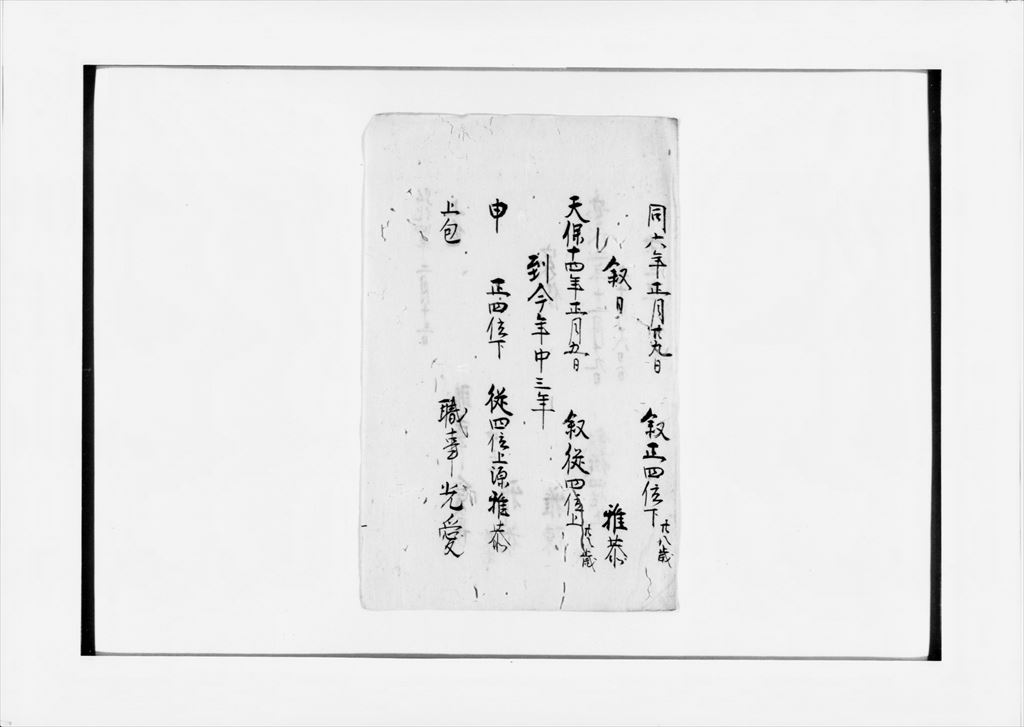 同六年正月廿九日 叙正四位下 廿八歳
叙日 雅恭
天保十四年正月五日 叙従四位上
到今年中三年
申 正四位下 従四位上源雅恭
上包 職事光愛